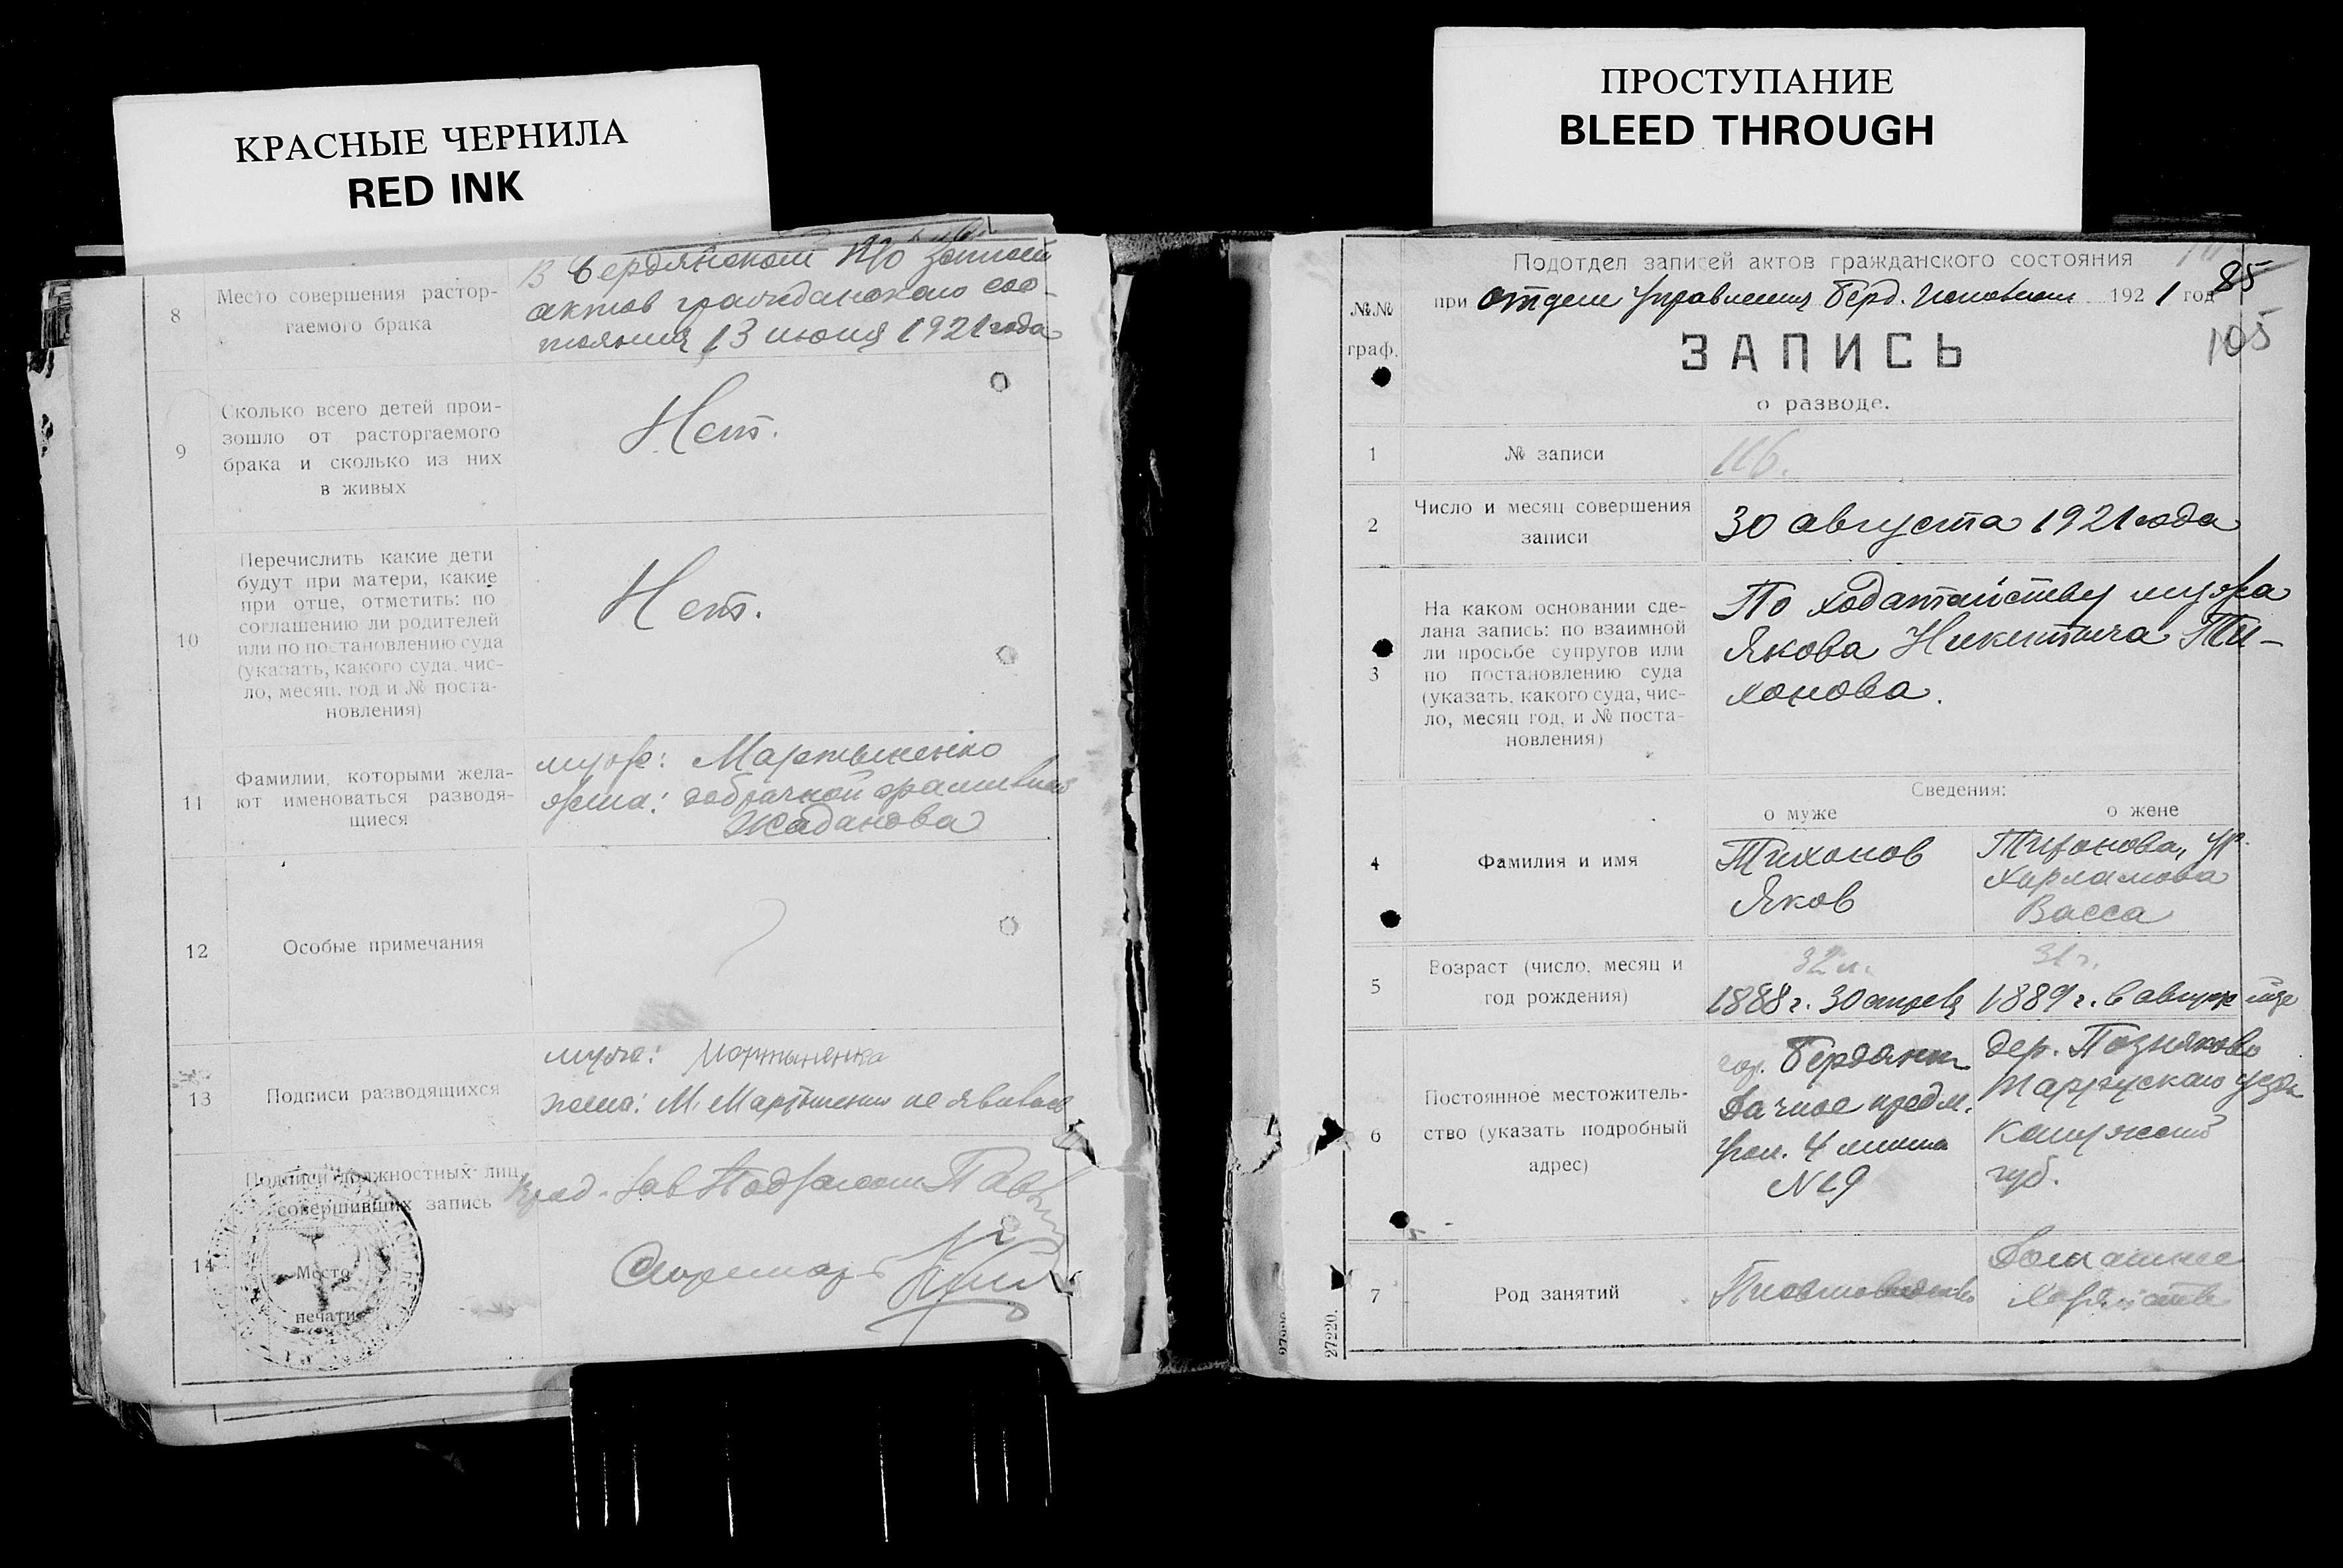 КРАСНЫЕ ЧЕРНИЛА
RED INK
8
Место совершения растор-
гаемого брака
В Бердянском П/о Записей
актов гражданского сос-
тояния 13 июня 1921 года
9
Сколько всего детей прои-
зошло от расторгаемого
брака и сколько из них
в живых
Нет.
10
Перечислить какие дети
будут при матери, какие
при отце, отметить: по
соглашению ли родителей
или по постановлению суда
(указать, какого суда, чис-
ло, месяц, год и № поста-
новления)
Нет.
11
Фамилии, которыми жела-
ют именоваться разводя-
щиеся
муж: Мартыненко
жена: добрачной фамилией
Жаданова
12
Особые примечания
13
Подписи разводящихся
муж: Мартыненко
жена: М. Мартыненко не явилась
14
Подписи должностных лиц,
совершивших запись
Место
печати
Зав
Секретарь
ПРОСТУПАНИЕ
BLEED THROUGH
Подотдел записей актов гражданского состояния
№№
граф.
при Отделе Управления Берд. Исполкома 1921 год
85
105
ЗАПИСЬ
о разводе.
1
№ записи
116.
2
Число и месяц совершения
записи
30 августа 1921 года
3
На каком основании сде-
лана запись: по взаимной
ли просьбе супругов или
по постановлению суда
(указать, какого суда, чис-
ло, месяц год, и № поста-
новления)
По ходатайству мужа
Якова Никитича Ти-
хонова.
Сведения:
о муже
о жене
4
Фамилия и имя
Тихонов
Яков
Тихонова, ур.
Харламова
Васса
5
Возраст (число, месяц и
год рождения)
32 л.
1888 г. 30 апреля
31 г.
1889 г. в августе
6
Постоянное местожитель-
ство (указать подробный
адрес)
гор. Бердянск
Дачное предм.
4 линия
№ 19
дер. Позняково
Тарусского уезда
Калужской
губ.
7
Род занятий
Домашнее
хозяйство
27220.